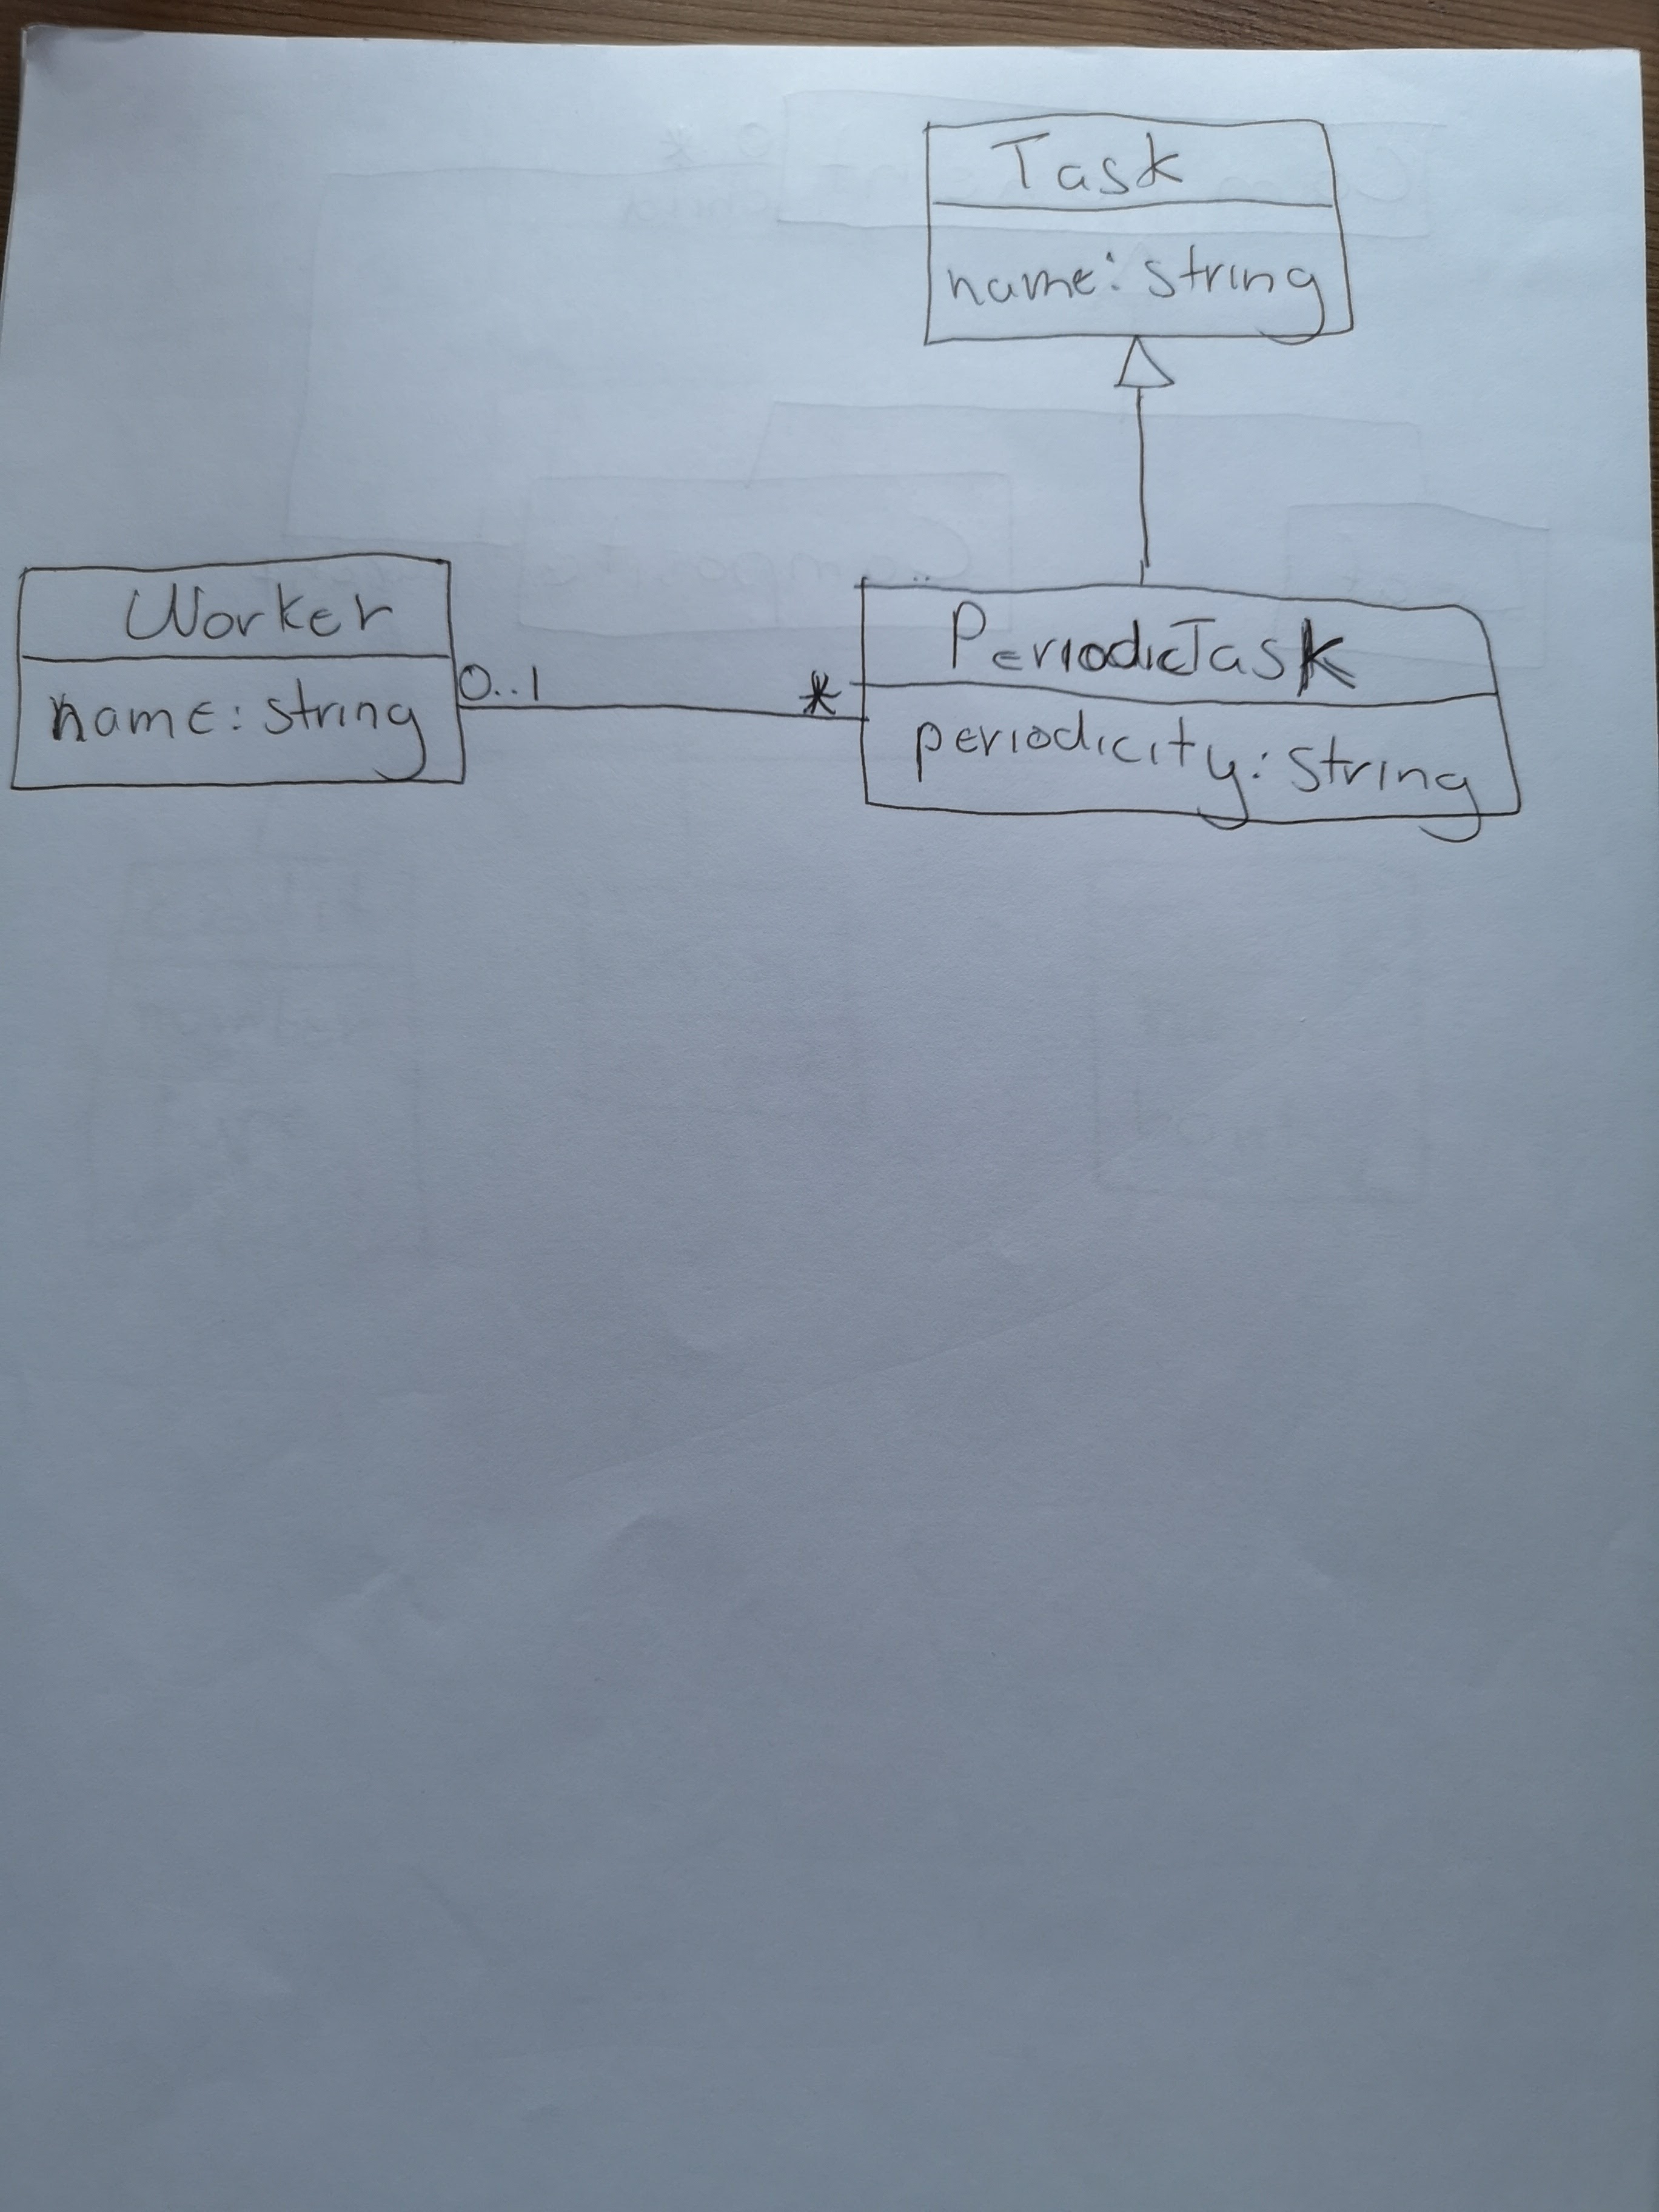 Task
name: string
Worker
name: string
0..1
*
PeriodicTask
periodicity: string